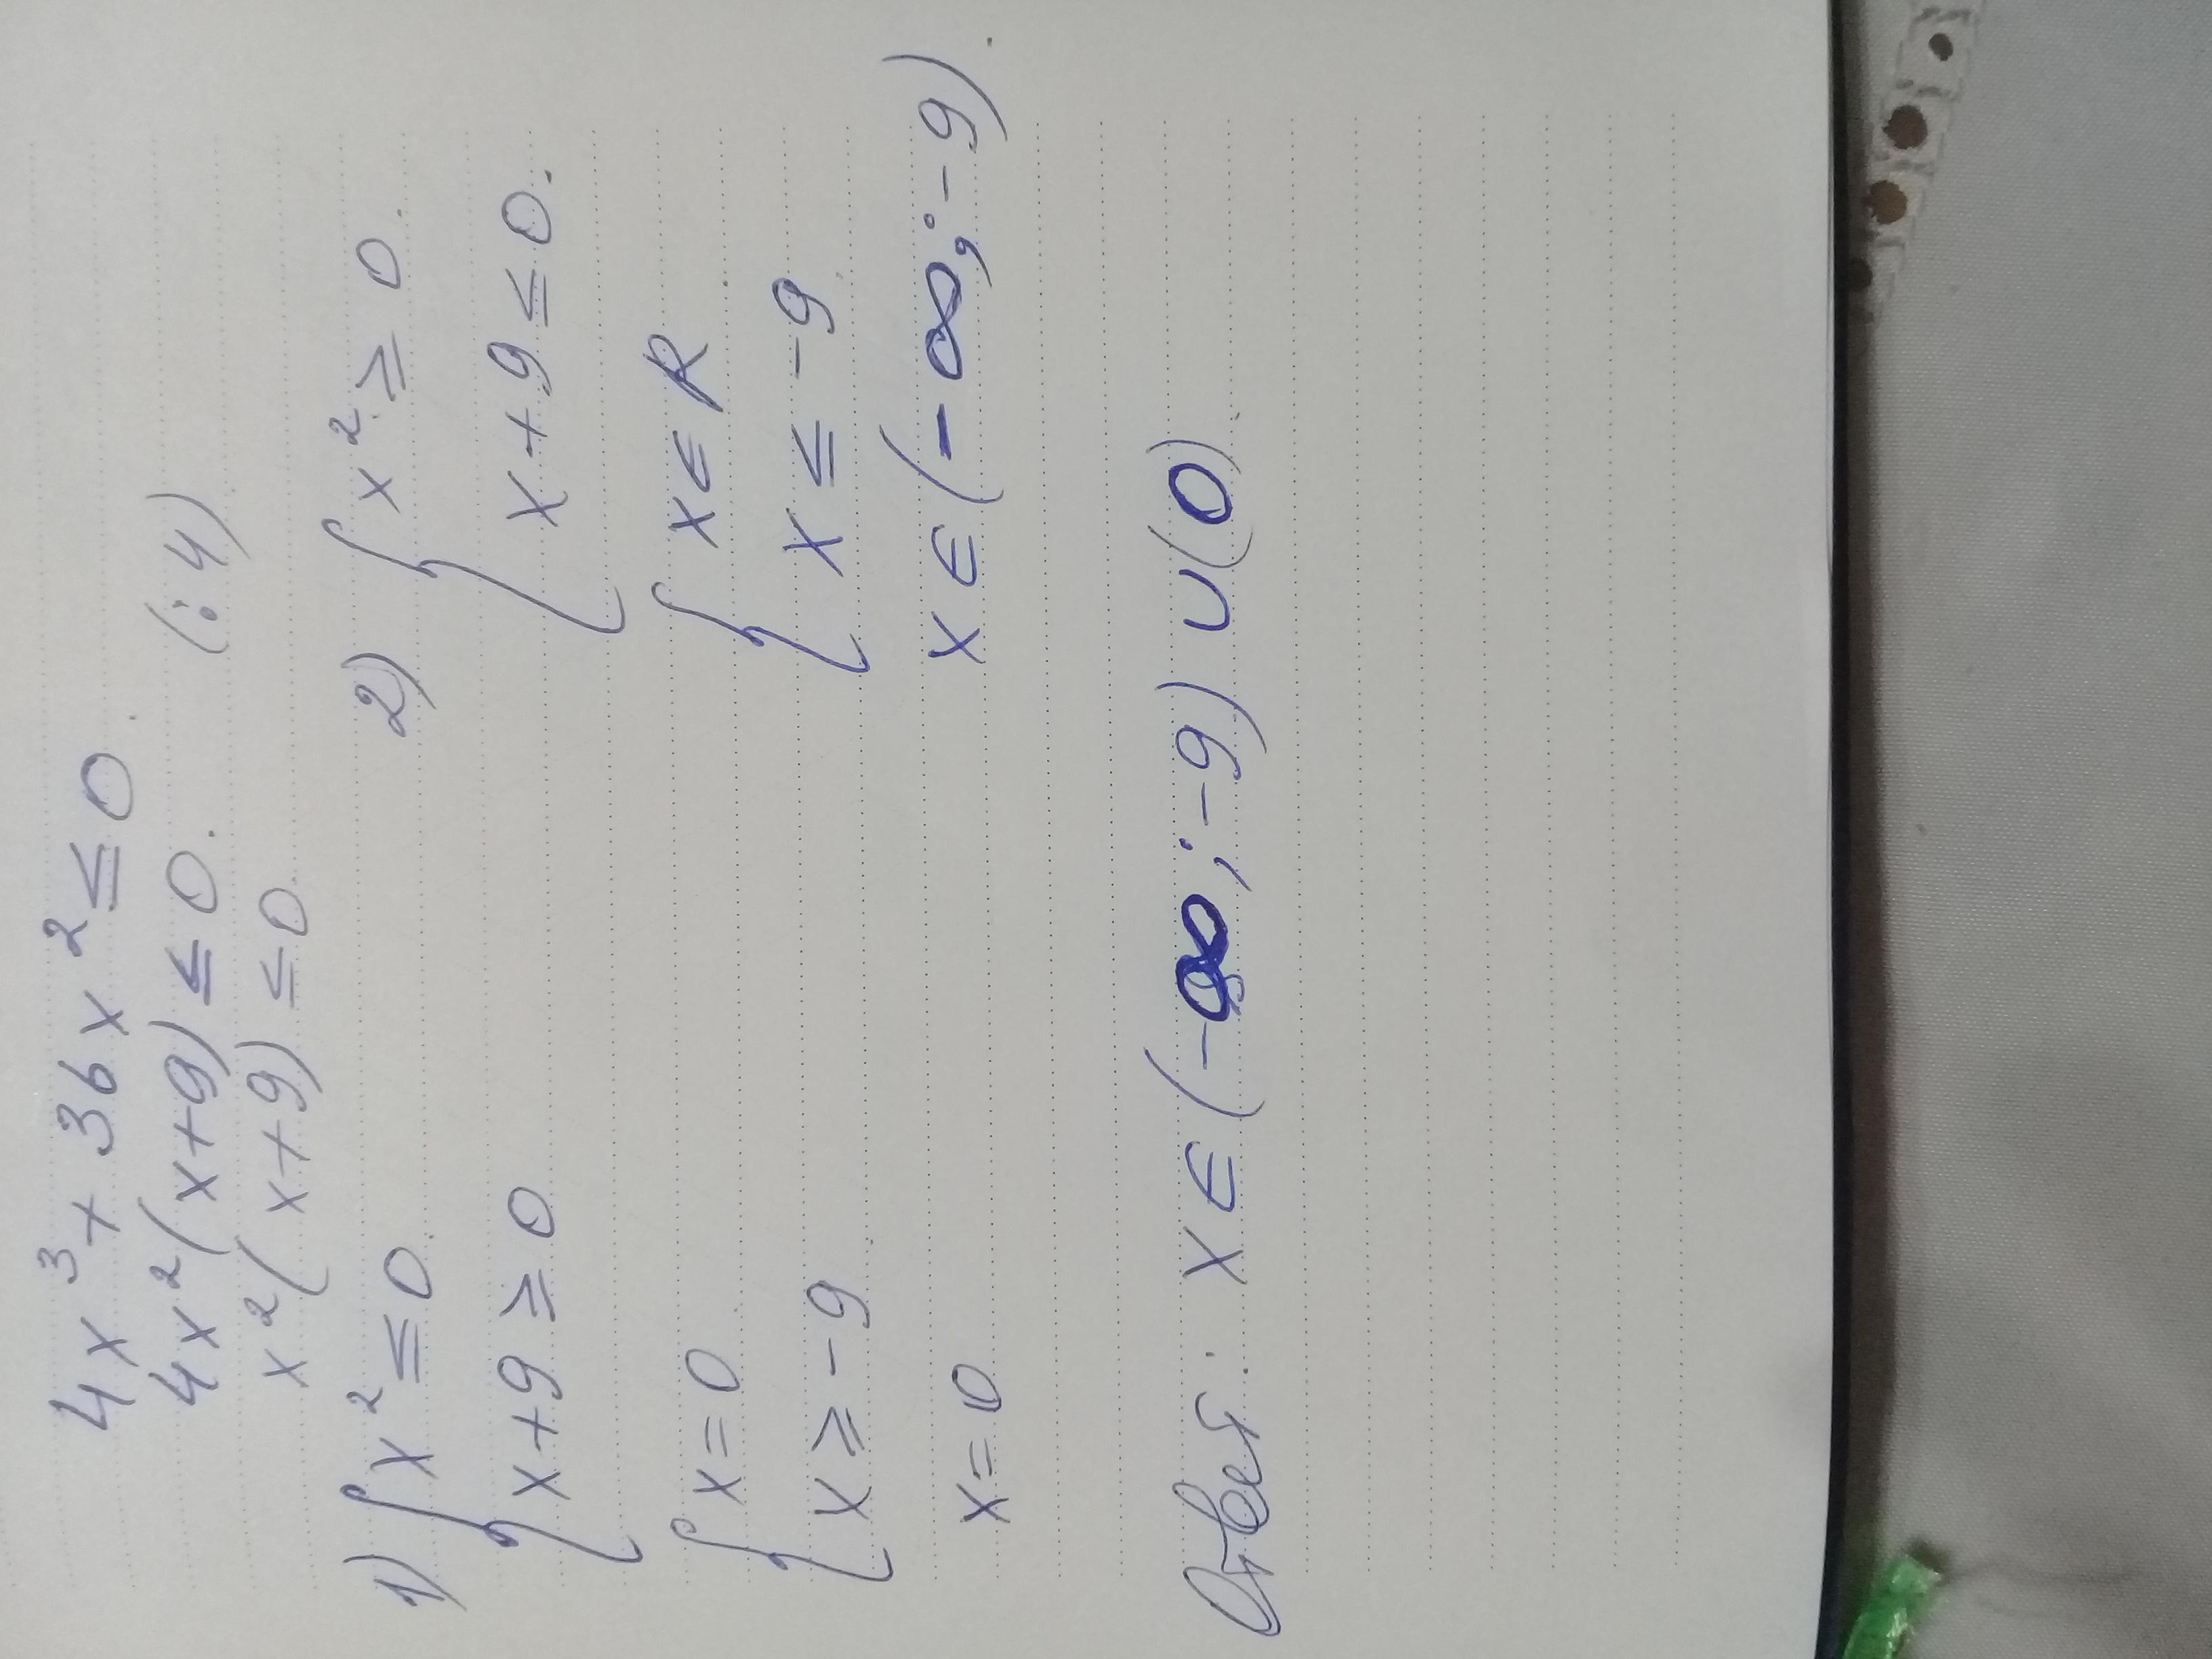 4x³ + 36x² ≤ 0.
4x²(x+9) ≤ 0. (:4)
x²(x+9) ≤ 0.
1) { x² ≤ 0. 2) { x² ≥ 0.
x+9 ≥ 0 x+9 ≤ 0.
{ x = 0 { x ∈ R
x ≥ -9 x ≤ -9
x = 0 x ∈ (-∞; -9).
Ответ: x ∈ (-∞; -9) ∪ (0).